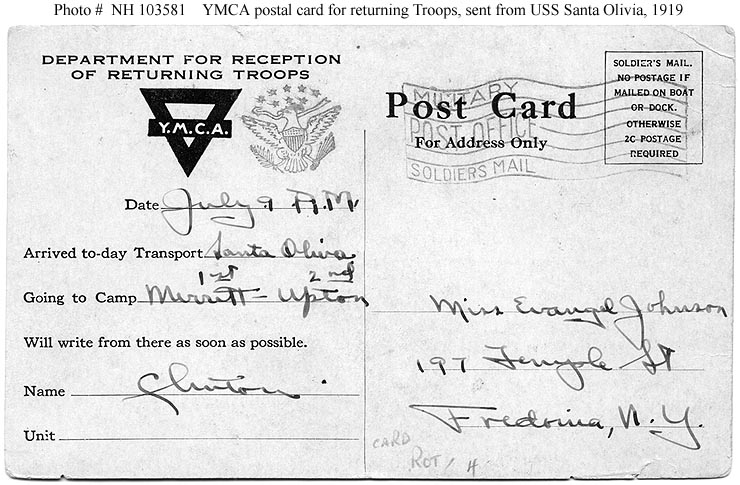 Photo # NH 103581 YMCA postal card for returning Troops, sent from USS Santa Olivia, 1919
DEPARTMENT FOR RECEPTION
OF RETURNING TROOPS
Y.M.C.A.
Date July 9 A.M.
Arrived to-day Transport Santa Olivia
1st 2nd
Going to Camp Merritt - Upton
Will write from there as soon as possible.
Name Clinton
Unit
MILITARY
POST OFFICE
SOLDIERS MAIL
Post Card
For Address Only
SOLDIER'S MAIL.
NO POSTAGE IF
MAILED ON BOAT
OR DOCK.
OTHERWISE
2C POSTAGE
REQUIRED
Miss Evangel Johnson
197 Temple St
Fredonia, N.Y.
CARD
ROT / H